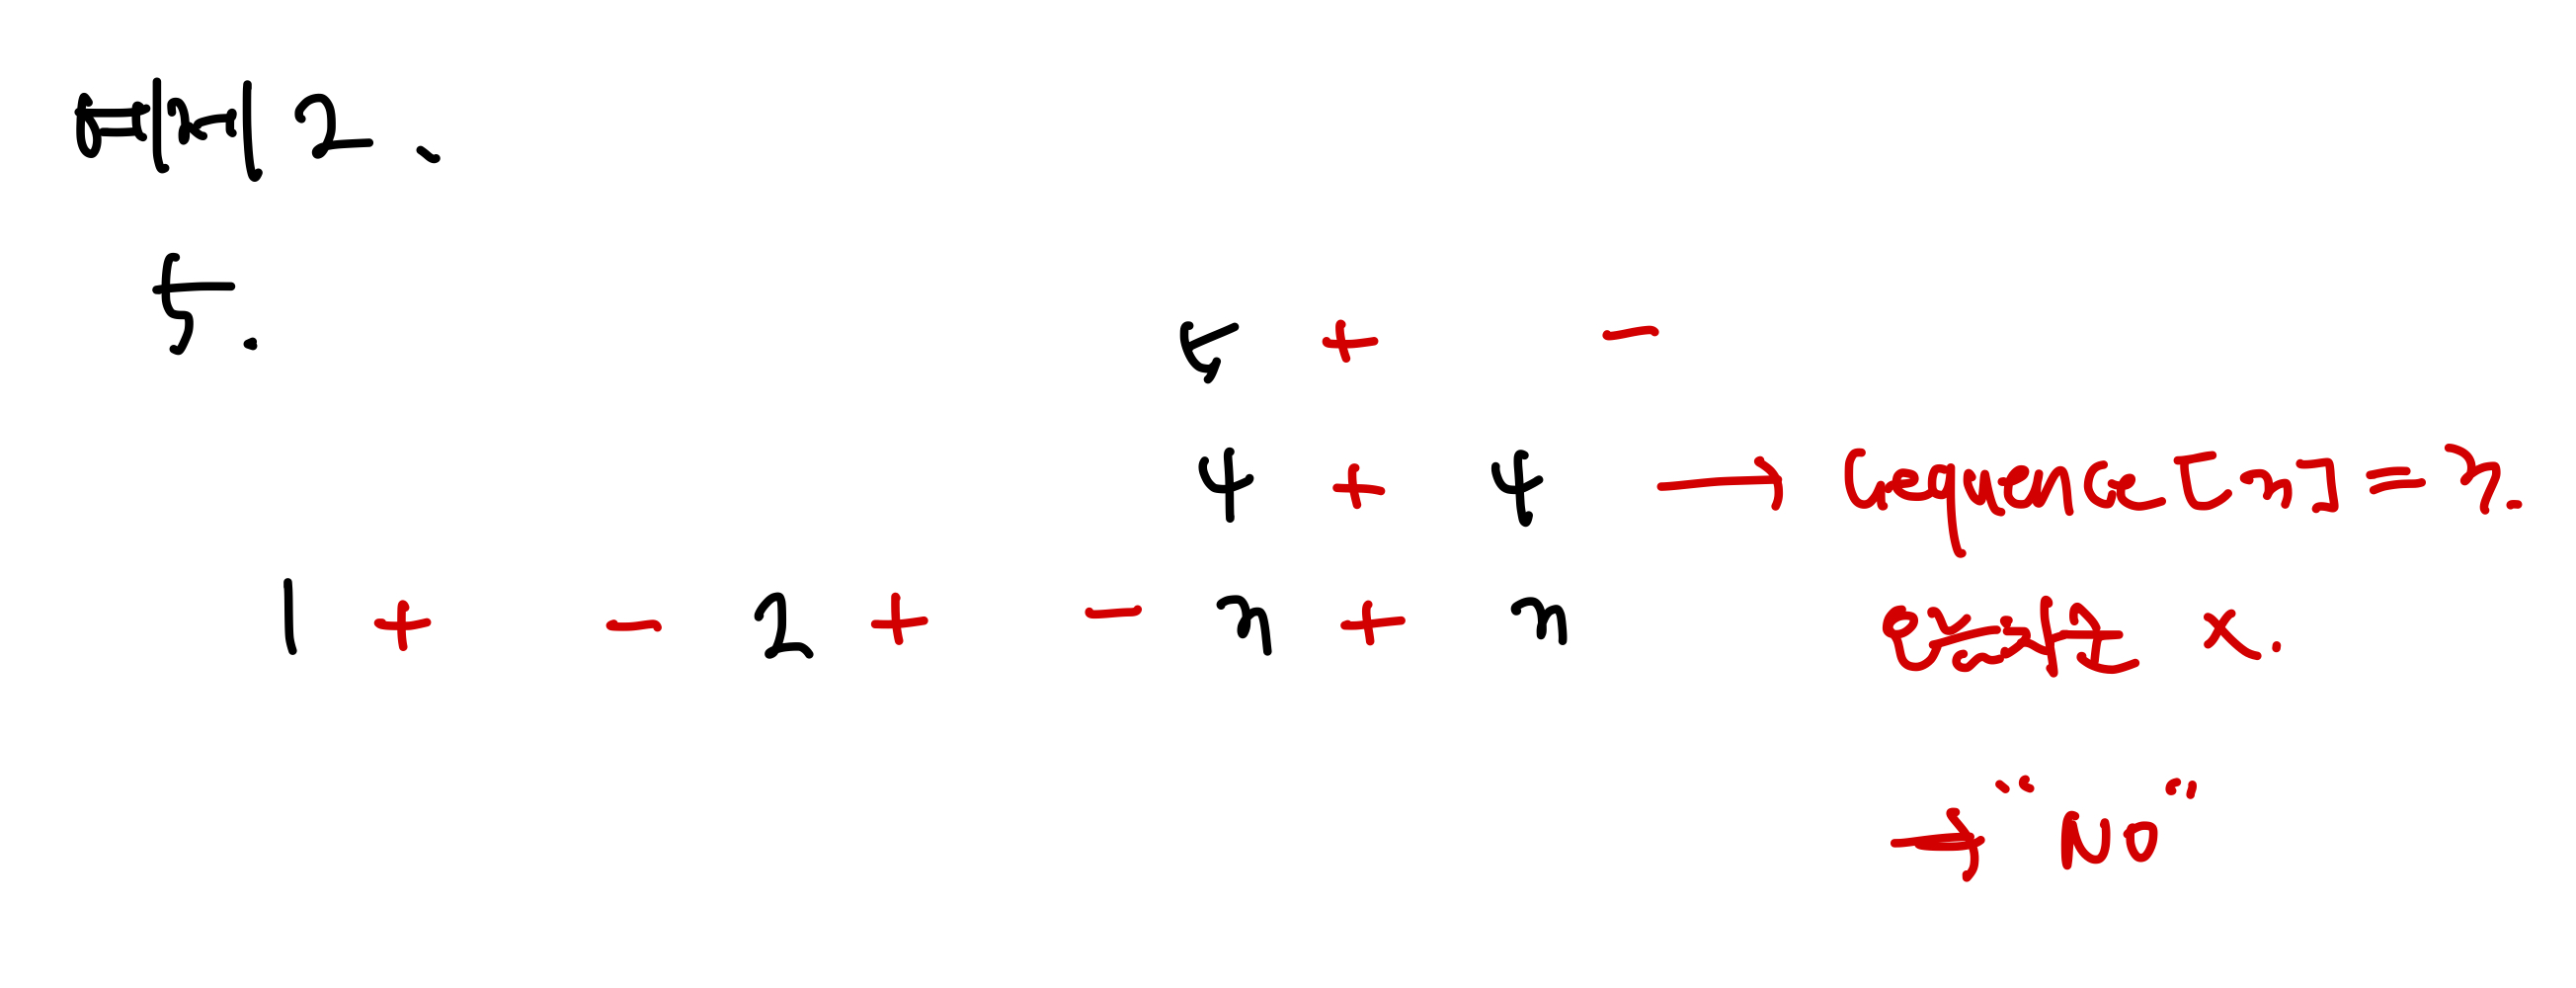 예제 2.
5.
5 + -
4 + 4 → Sequence[3] = 3.
1 + - 2 + - 3 + 3 x.
→ "NO"